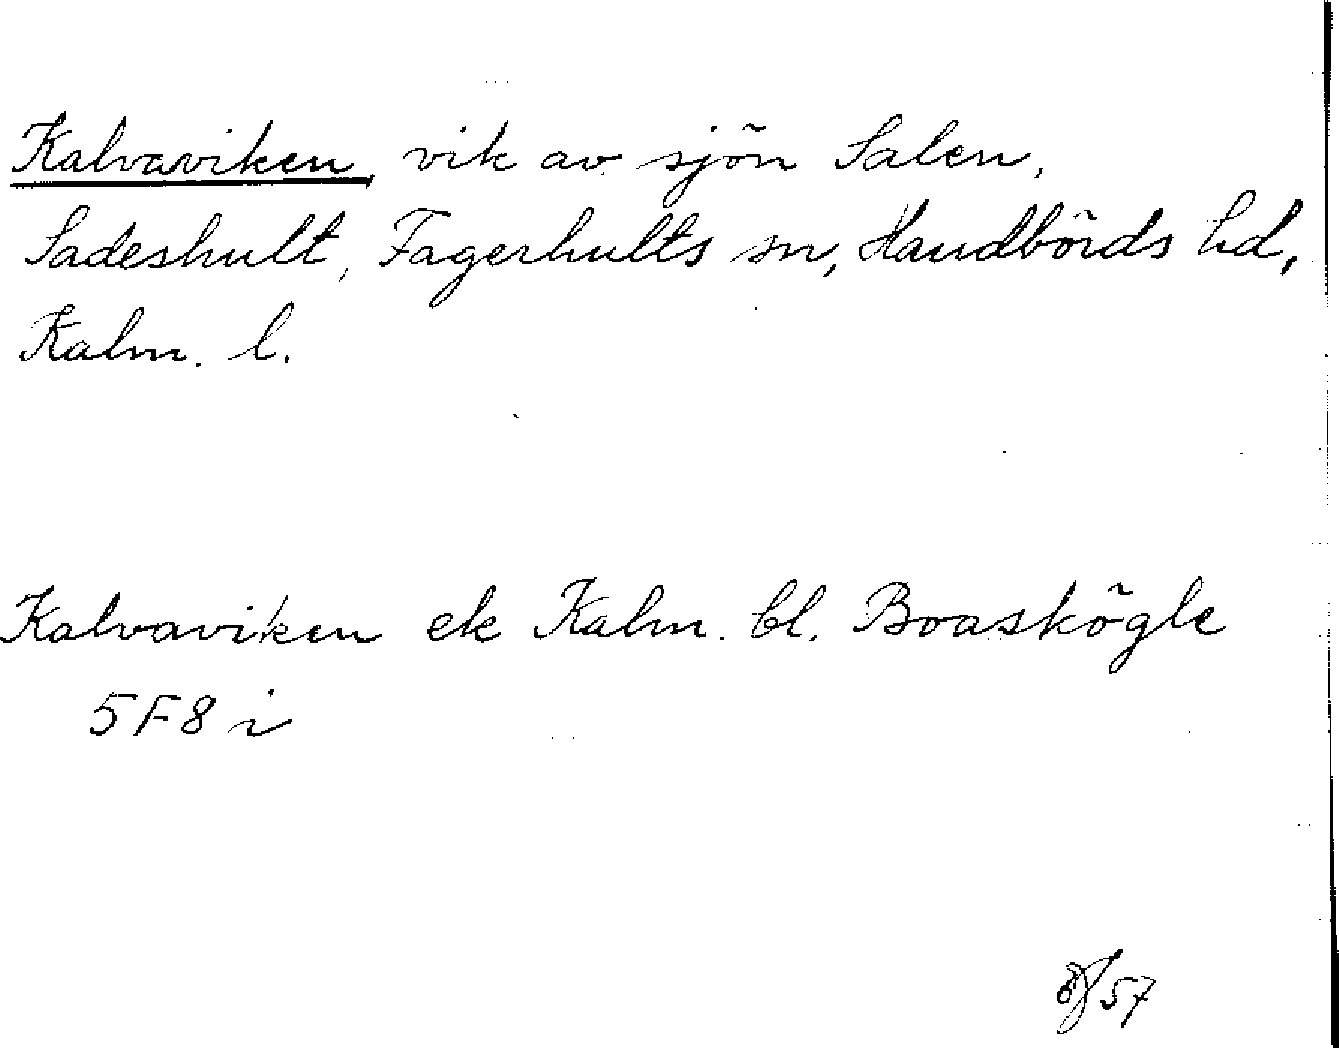 Kalvaviken, vik av sjön Salen,
Sadeshult, Fagerhults sn, Handbörds hd,
Kalm. l.
Kalvaviken ek Kalm. bl. Boaskögle
5F8i
57